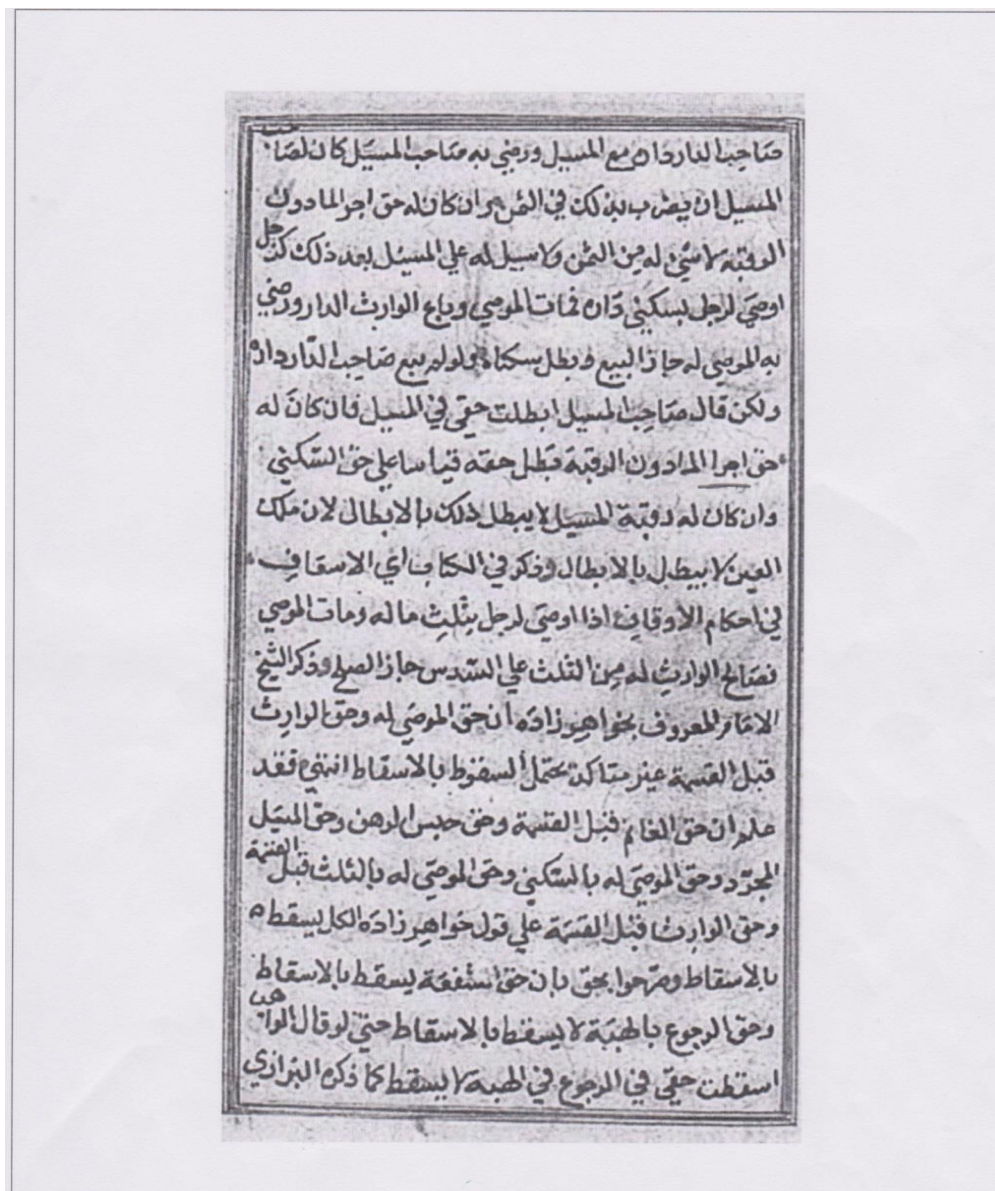 صاحب الدار داره مع المسيل ورضي به صاحب المسيل كان لصاحب
المسيل ان يضرب بذلك في الثمن وان كان له حق اجر الما دون
الرقبة لا شيء له من الثمن ولا سبيل له علي المسيل بعد ذلك كرجل
اوصي لرجل بسكني داره فمات الموصي وباع الوارث الدار ورضي
به الموصي له جاز البيع وبطل سكناه ولو لم يبع صاحب الدار داره
ولكن قال صاحب المسيل ابطلت حقي في المسيل فان كان له
حق اجرا الما دون الرقبة فبطل حقه قياسا علي حق السكني
وان كان له رقبة المسيل لا يبطل ذلك بالابطال لان ملك
العين لا يبطل بالابطال وذكر في الكتاب اي الاسعاف
في احكام الاوقاف اذا اوصي لرجل بثلث ماله ومات الموصي
فصالح الوارث له من الثلث علي السدس جاز الصلح وذكر الشيخ
الامام المعروف بخواهر زاده ان حق الموصي له وحق الوارث
قبل القسمة غير متاكد يحتمل السقوط بالاسقاط انتهي فقد
علم ان حق الغانم قبل القسمة وحق حبس الرهن وحق المسيل
المجرد وحق الموصي له بالسكني وحق الموصي له بالثلث قبل القسمة
وحق الوارث قبل القسمة علي قول خواهر زاده الكل يسقط
بالاسقاط وصرحوا بحق بان حق الشفعة يسقط بالاسقاط
وحق الرجوع بالهبة لا يسقط بالاسقاط حتي لو قال الواهب
اسقطت حقي في الرجوع في الهبة لا يسقط كما ذكره البزازي